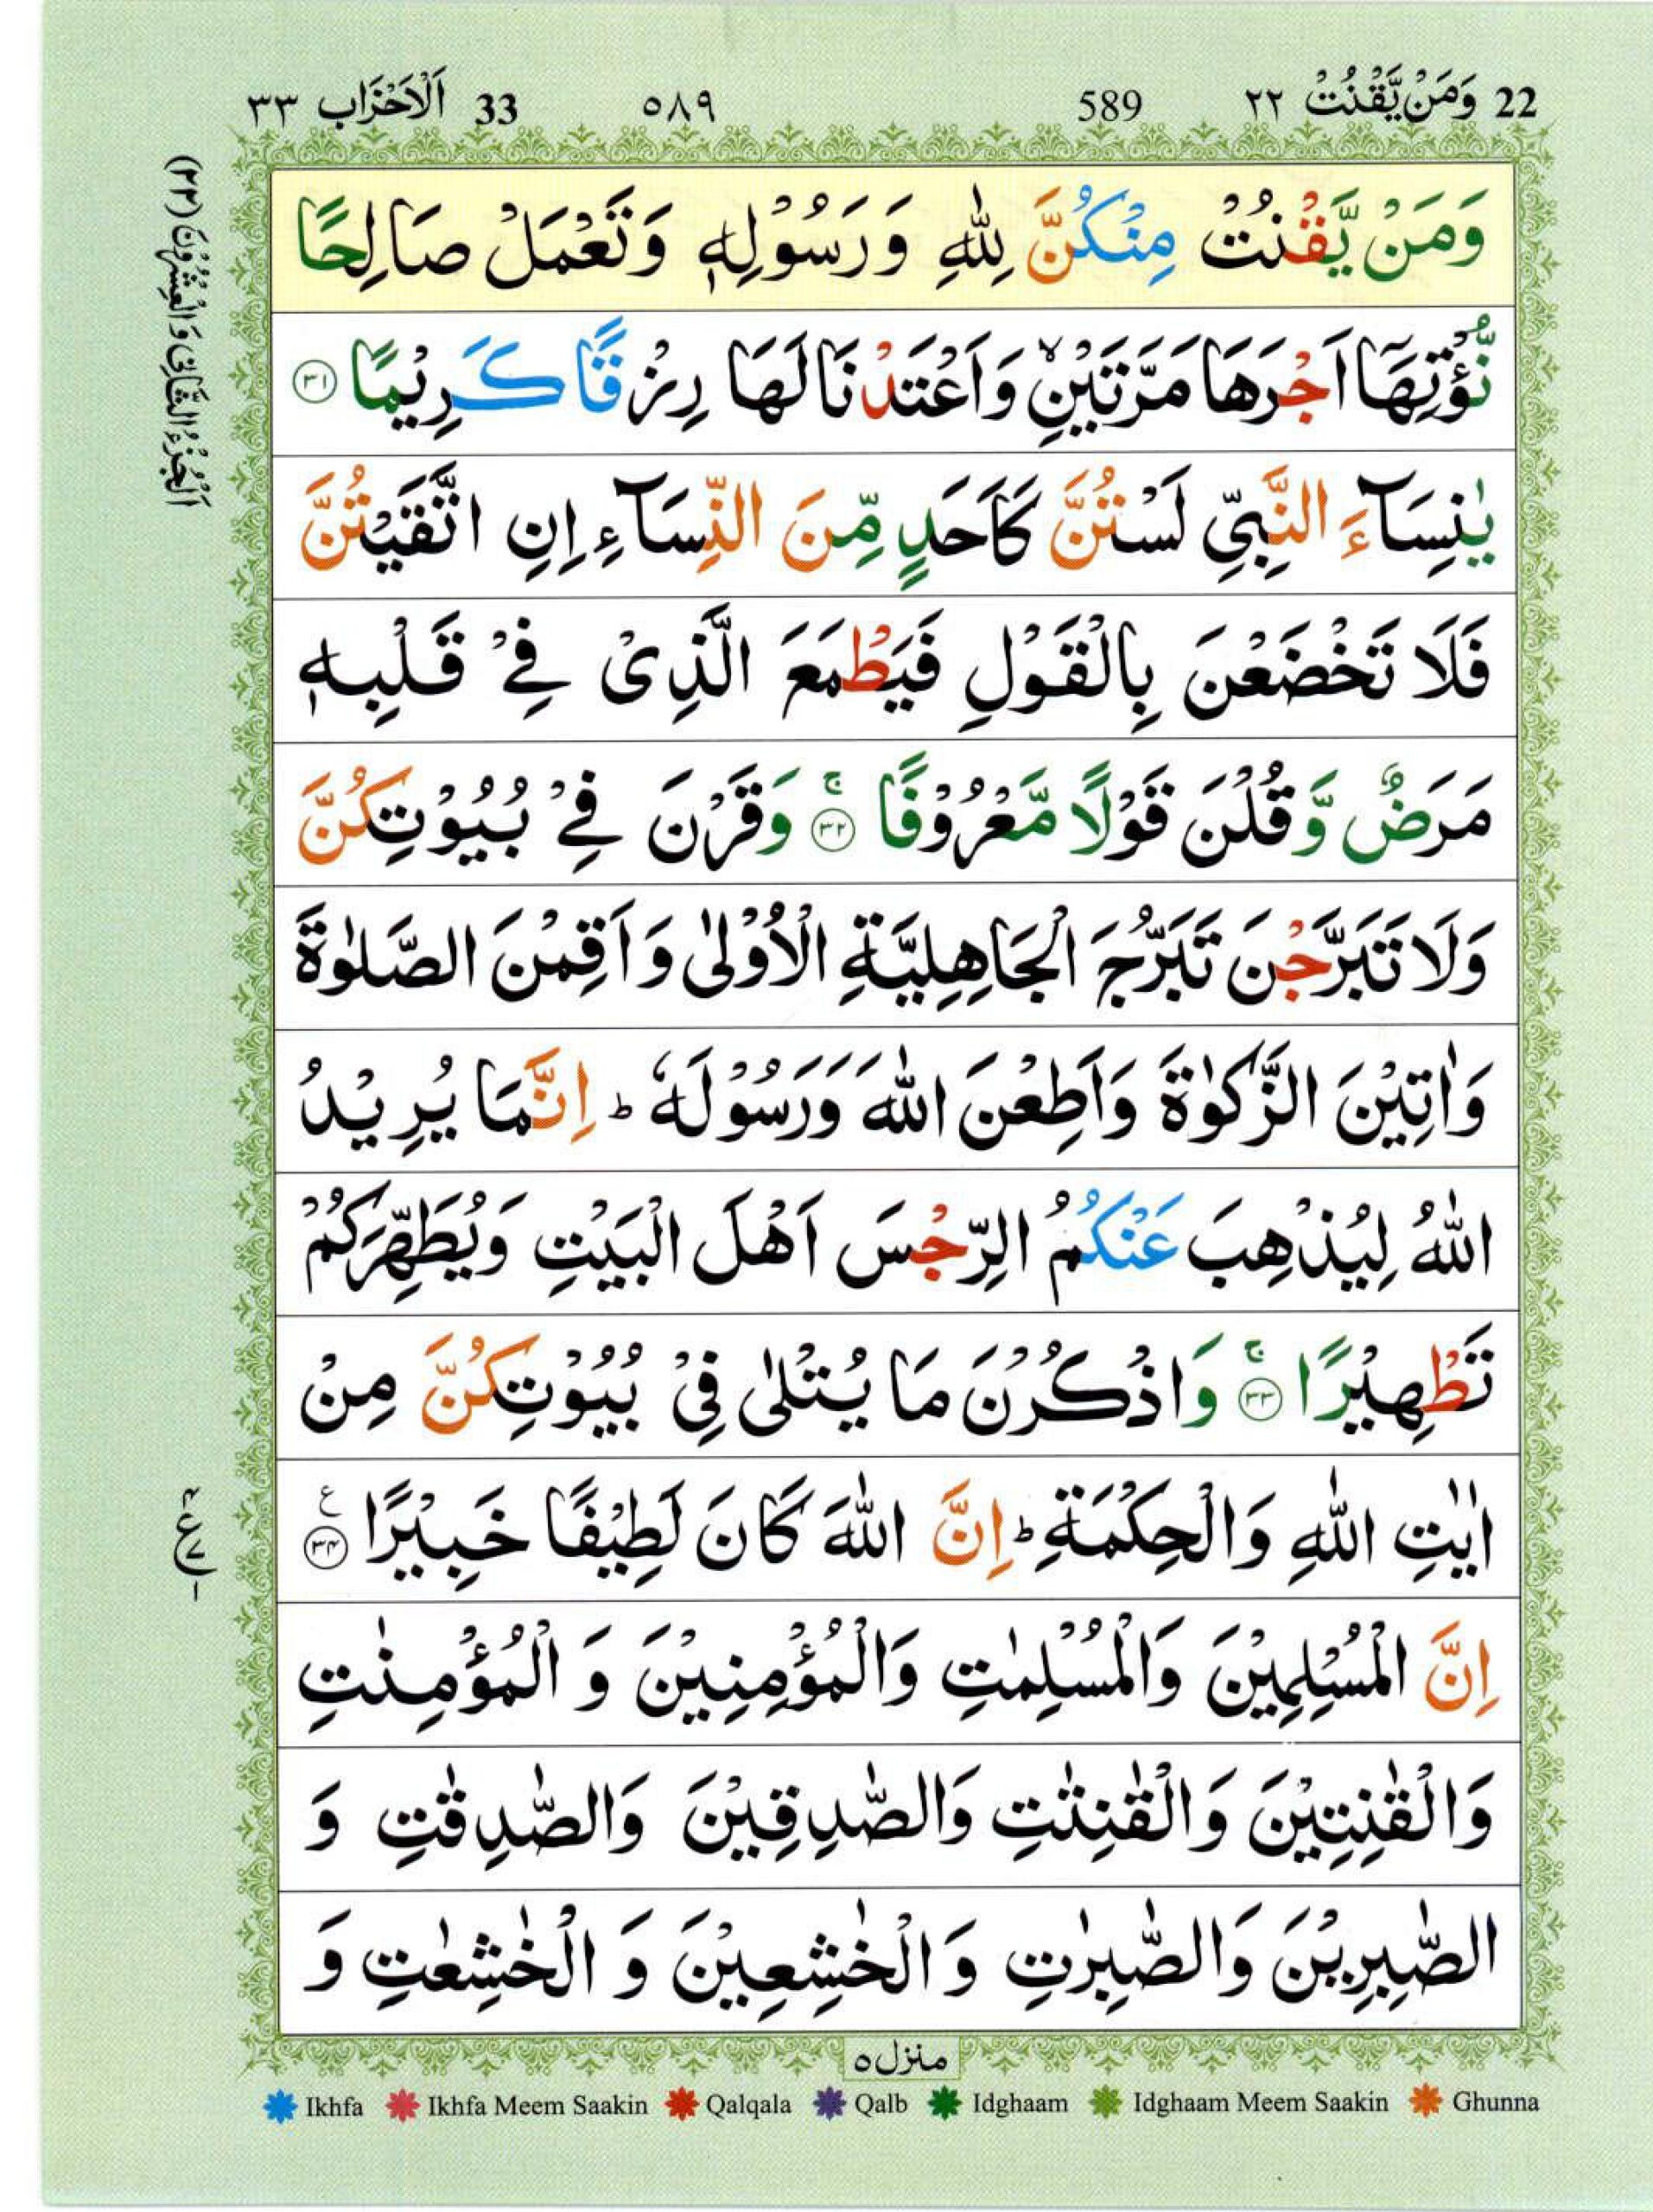 22 وَمَنْ يَّقْنُتْ ٢٢ 589 ٥٨٩ 33 اَلْاَحْزَاب ٣٣
وَمَنْ يَّقْنُتْ مِنْكُنَّ لِلّٰهِ وَرَسُوْلِهٖ وَتَعْمَلْ صَالِحًا
نُّؤْتِهَآ اَجْرَهَا مَرَّتَيْنِ ۙ وَاَعْتَدْنَا لَهَا رِزْقًا كَرِيْمًا ٣١
يٰنِسَآءَ النَّبِيِّ لَسْتُنَّ كَاَحَدٍ مِّنَ النِّسَآءِ اِنِ اتَّقَيْتُنَّ
فَلَا تَخْضَعْنَ بِالْقَوْلِ فَيَطْمَعَ الَّذِىْ فِىْ قَلْبِهٖ
مَرَضٌ وَّقُلْنَ قَوْلًا مَّعْرُوْفًا ۚ ٣٢ وَقَرْنَ فِىْ بُيُوْتِكُنَّ
وَلَا تَبَرَّجْنَ تَبَرُّجَ الْجَاهِلِيَّةِ الْاُوْلٰى وَاَقِمْنَ الصَّلٰوةَ
وَاٰتِيْنَ الزَّكٰوةَ وَاَطِعْنَ اللّٰهَ وَرَسُوْلَهٗ ؕ اِنَّمَا يُرِيْدُ
اللّٰهُ لِيُذْهِبَ عَنْكُمُ الرِّجْسَ اَهْلَ الْبَيْتِ وَيُطَهِّرَكُمْ
تَطْهِيْرًا ۚ ٣٣ وَاذْكُرْنَ مَا يُتْلٰى فِىْ بُيُوْتِكُنَّ مِنْ
اٰيٰتِ اللّٰهِ وَالْحِكْمَةِ ؕ اِنَّ اللّٰهَ كَانَ لَطِيْفًا خَبِيْرًا ع ٣٤
اِنَّ الْمُسْلِمِيْنَ وَالْمُسْلِمٰتِ وَالْمُؤْمِنِيْنَ وَ الْمُؤْمِنٰتِ
وَالْقٰنِتِيْنَ وَالْقٰنِتٰتِ وَالصّٰدِقِيْنَ وَالصّٰدِقٰتِ وَ
الصّٰبِرِيْنَ وَالصّٰبِرٰتِ وَ الْخٰشِعِيْنَ وَ الْخٰشِعٰتِ وَ
منزل ٥
Ikhfa Ikhfa Meem Saakin Qalqala Qalb Idghaam Idghaam Meem Saakin Ghunna
اَلْجُزْءُ الثَّانِىْ وَالْعِشْرُوْنَ (٢٢)